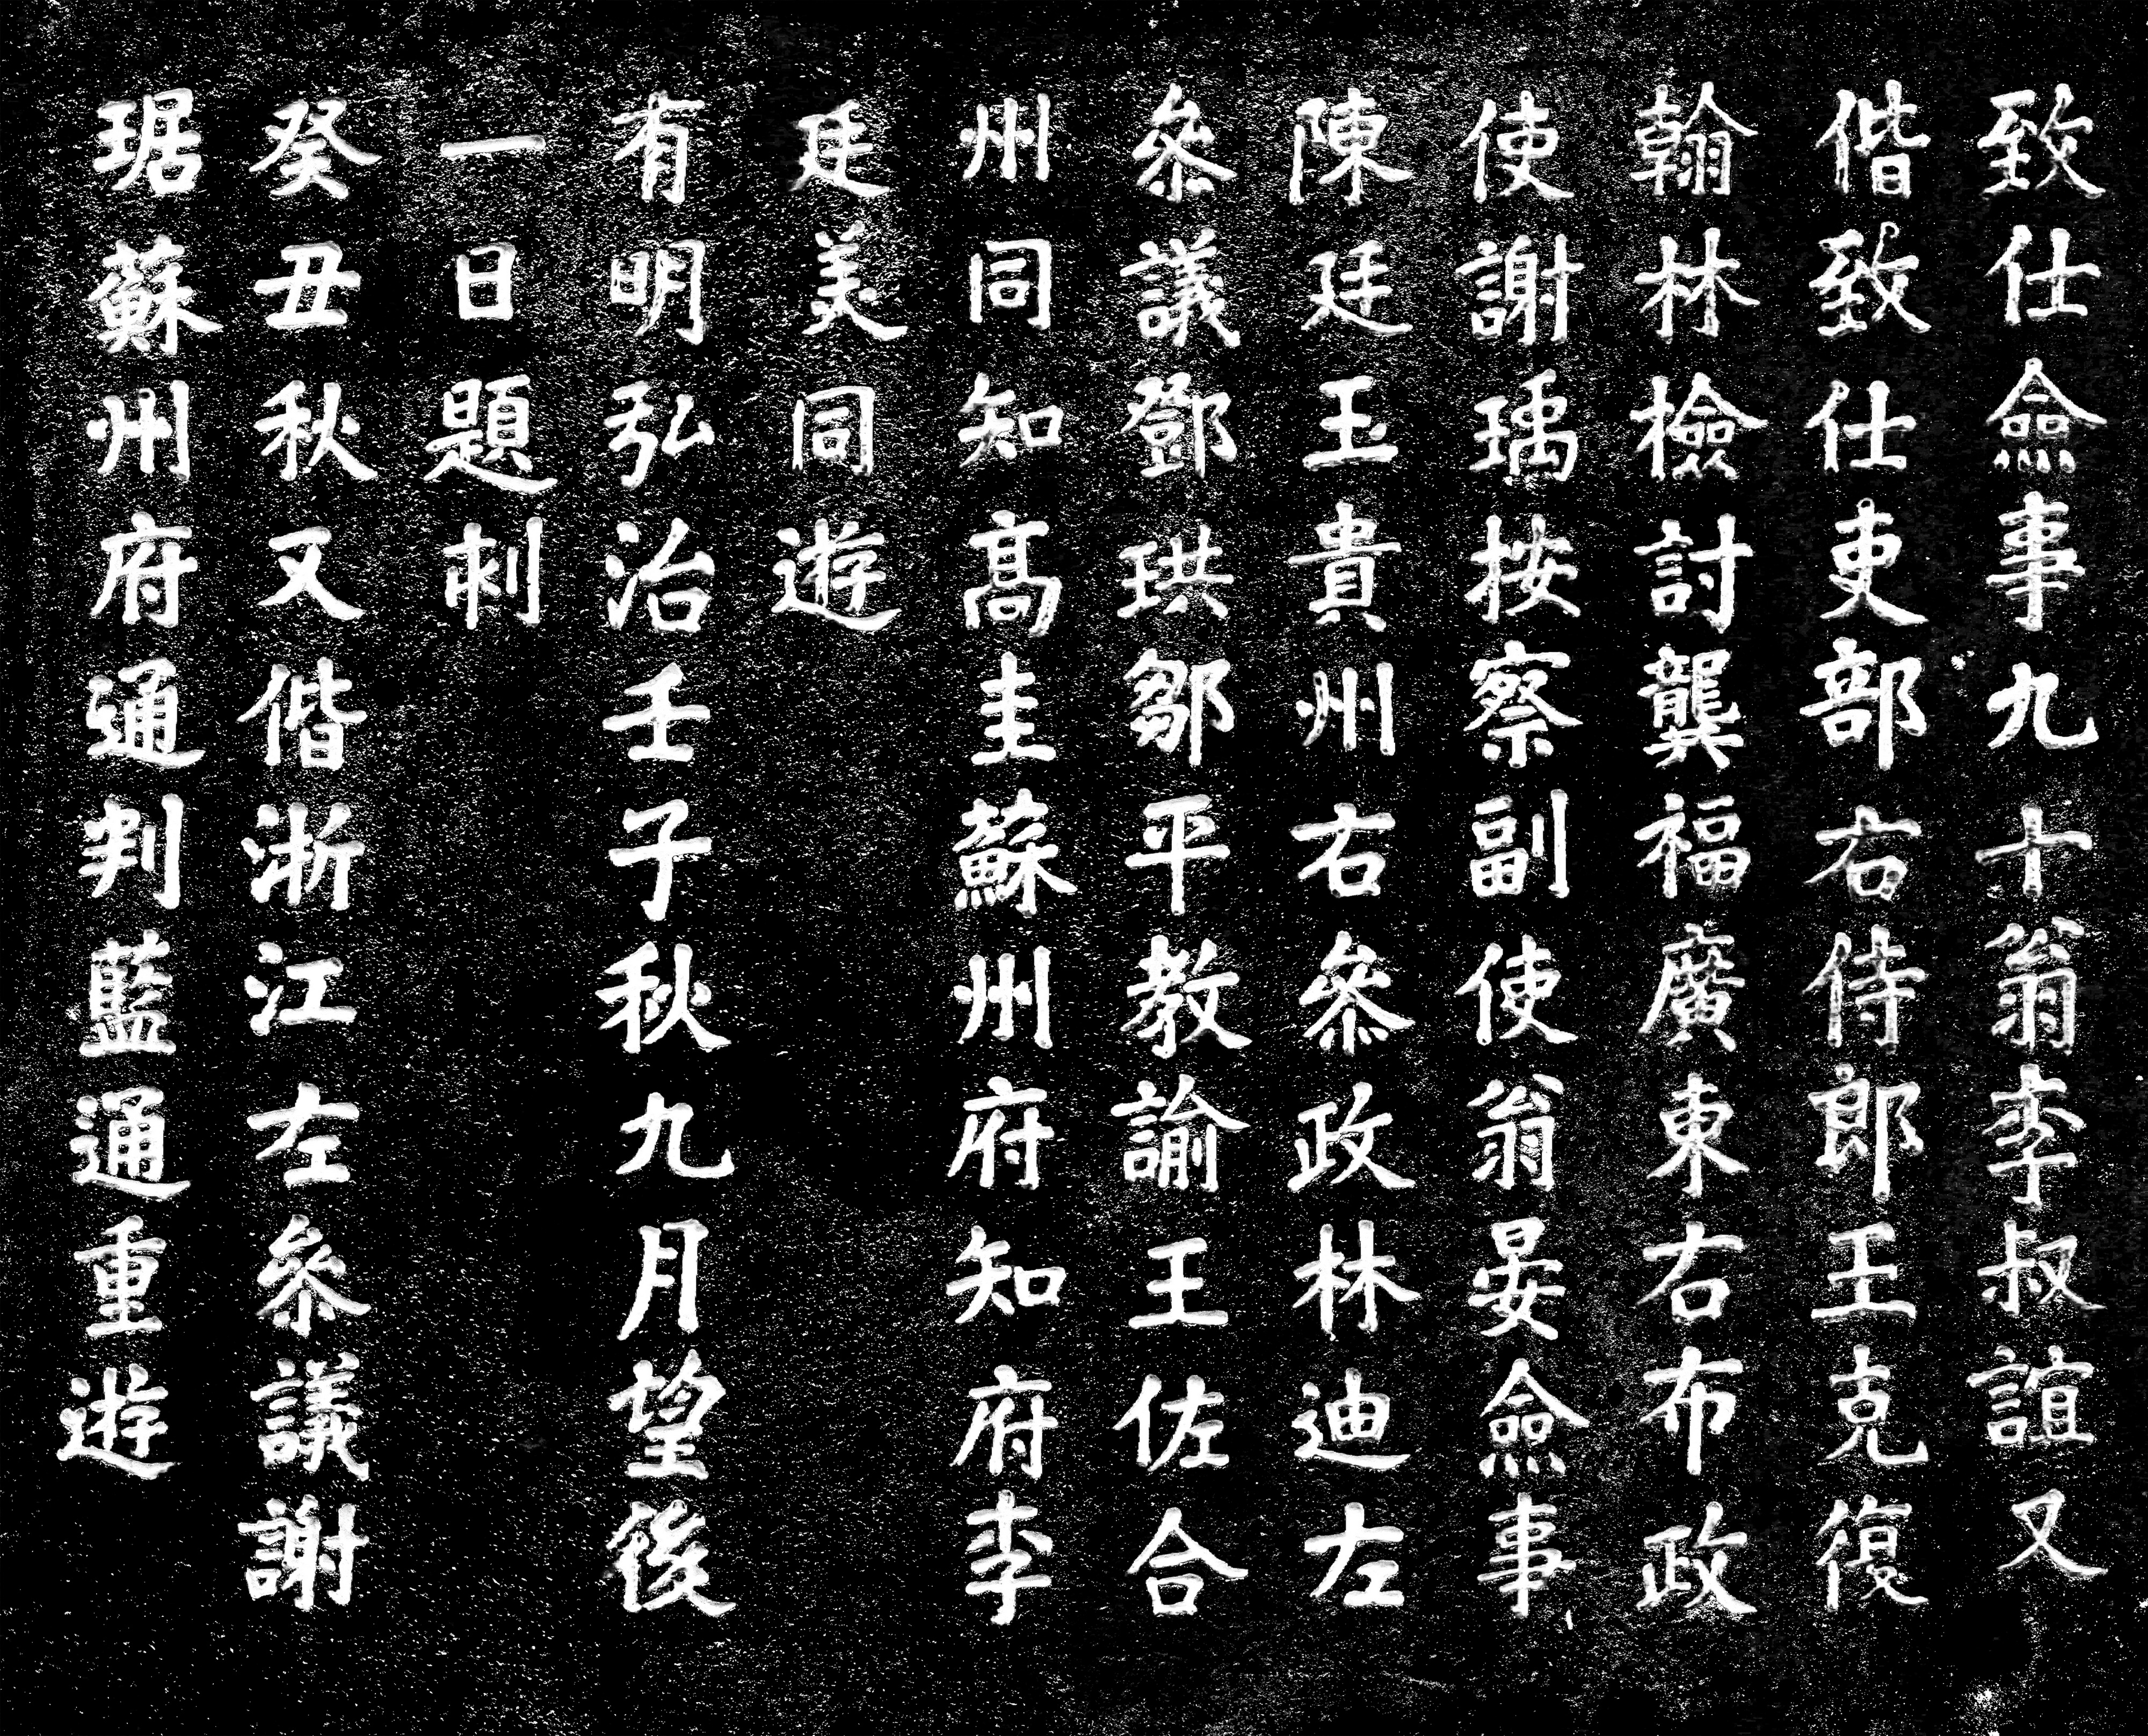 致仕僉事九十翁李叔誼又
偕致仕吏部右侍郎王克復
翰林檢討龔福廣東右布政
使謝瑀按察副使翁晏僉事
陳廷玉貴州右參政林迪左
參議鄧珙鄒平教諭王佐合
州同知高圭蘇州府知府李
廷美同遊
有明弘治壬子秋九月望後
一日題刺
癸丑秋又偕浙江左參議謝
琚蘇州府通判藍通重遊